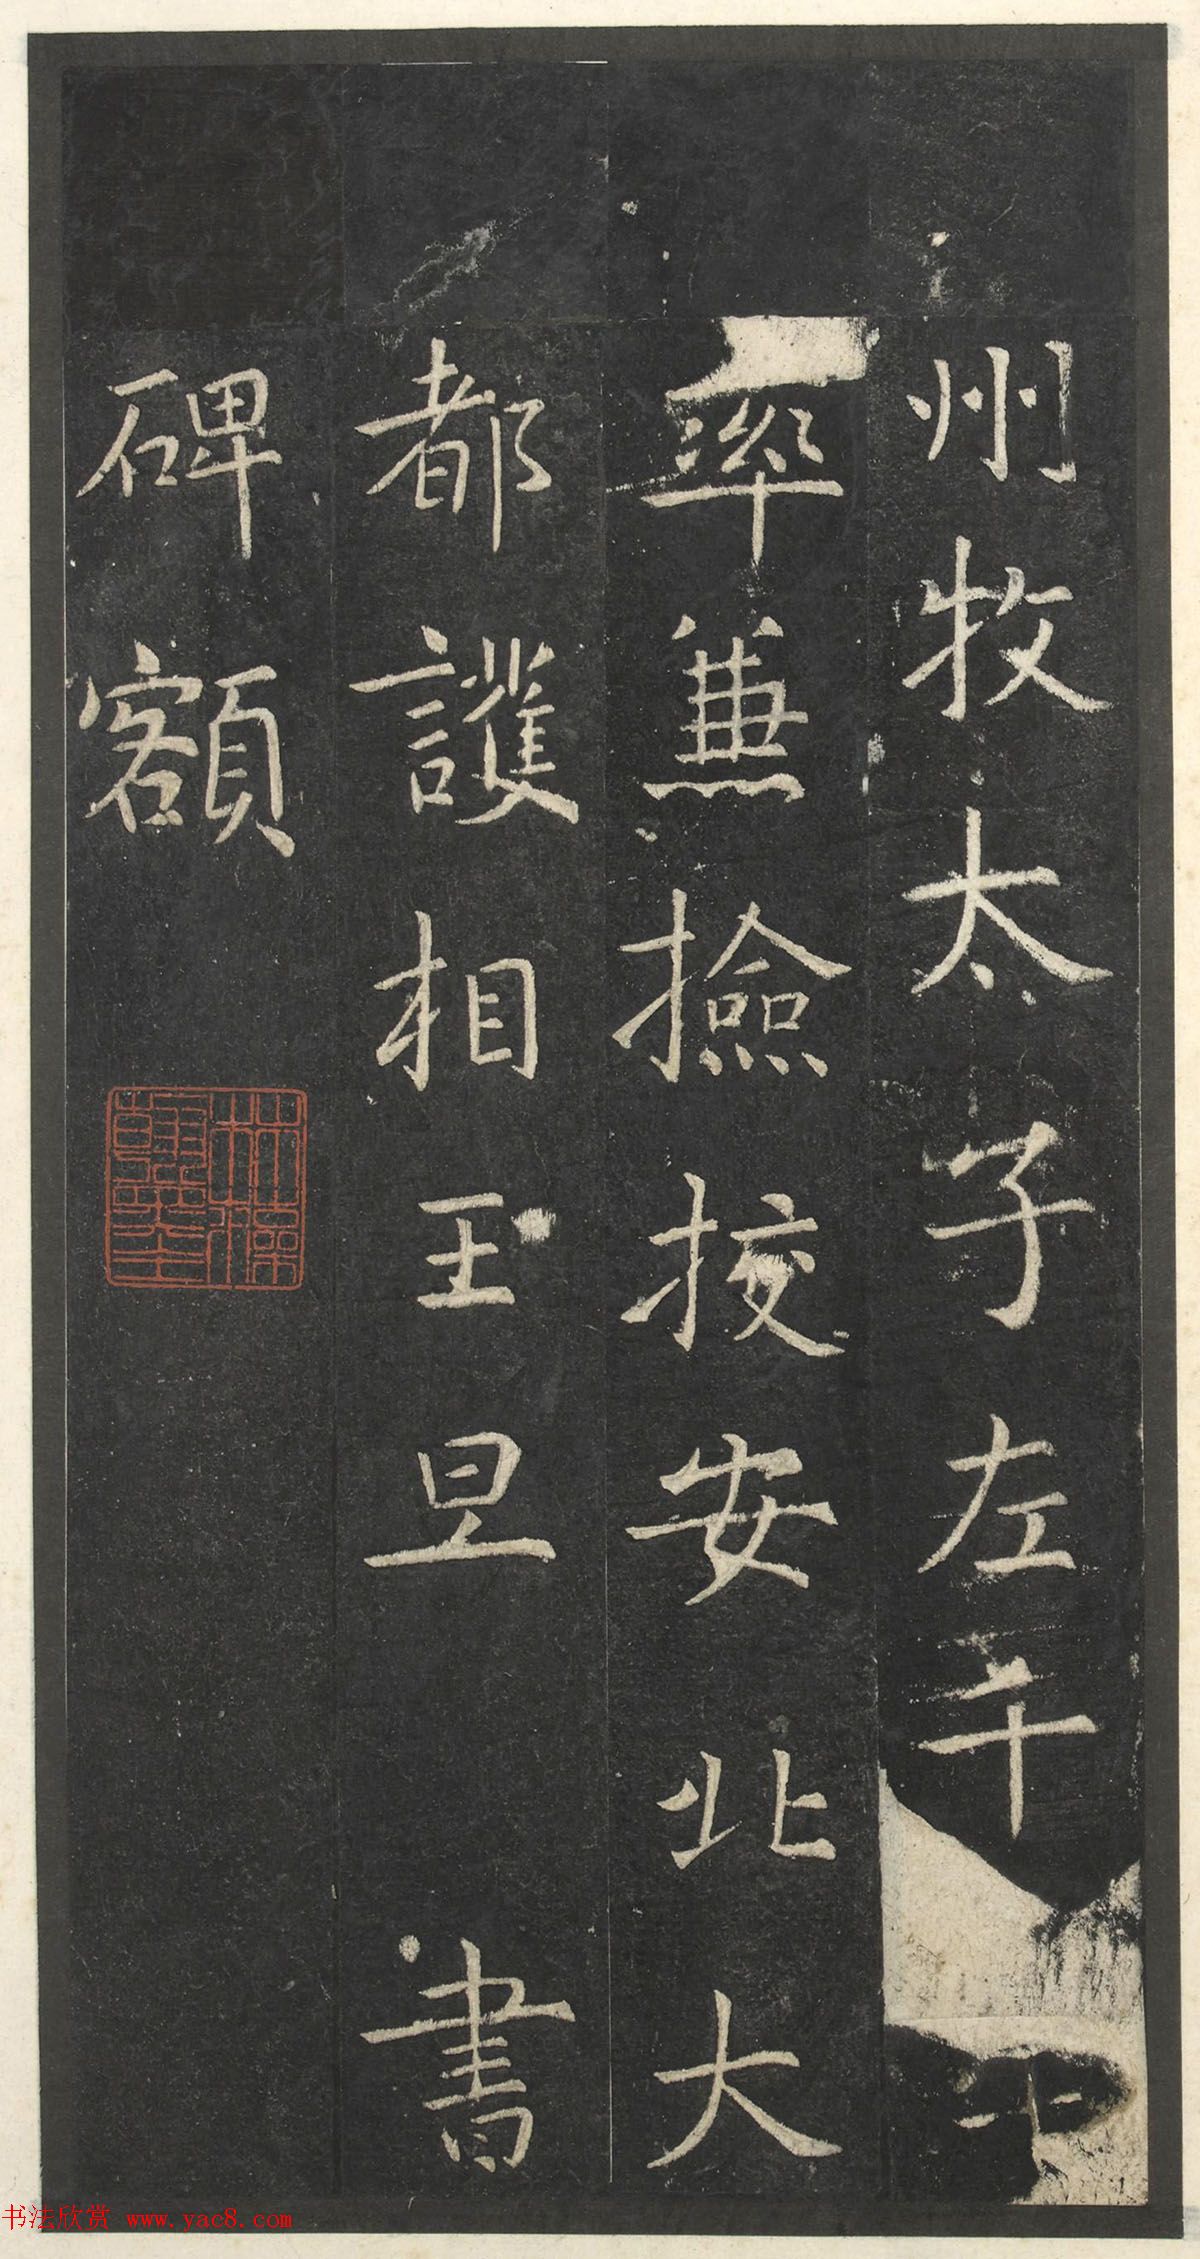 州牧太子左千
率兼撿挍安北大
都護相王旦書
碑額
书法欣赏 www.yac8.com